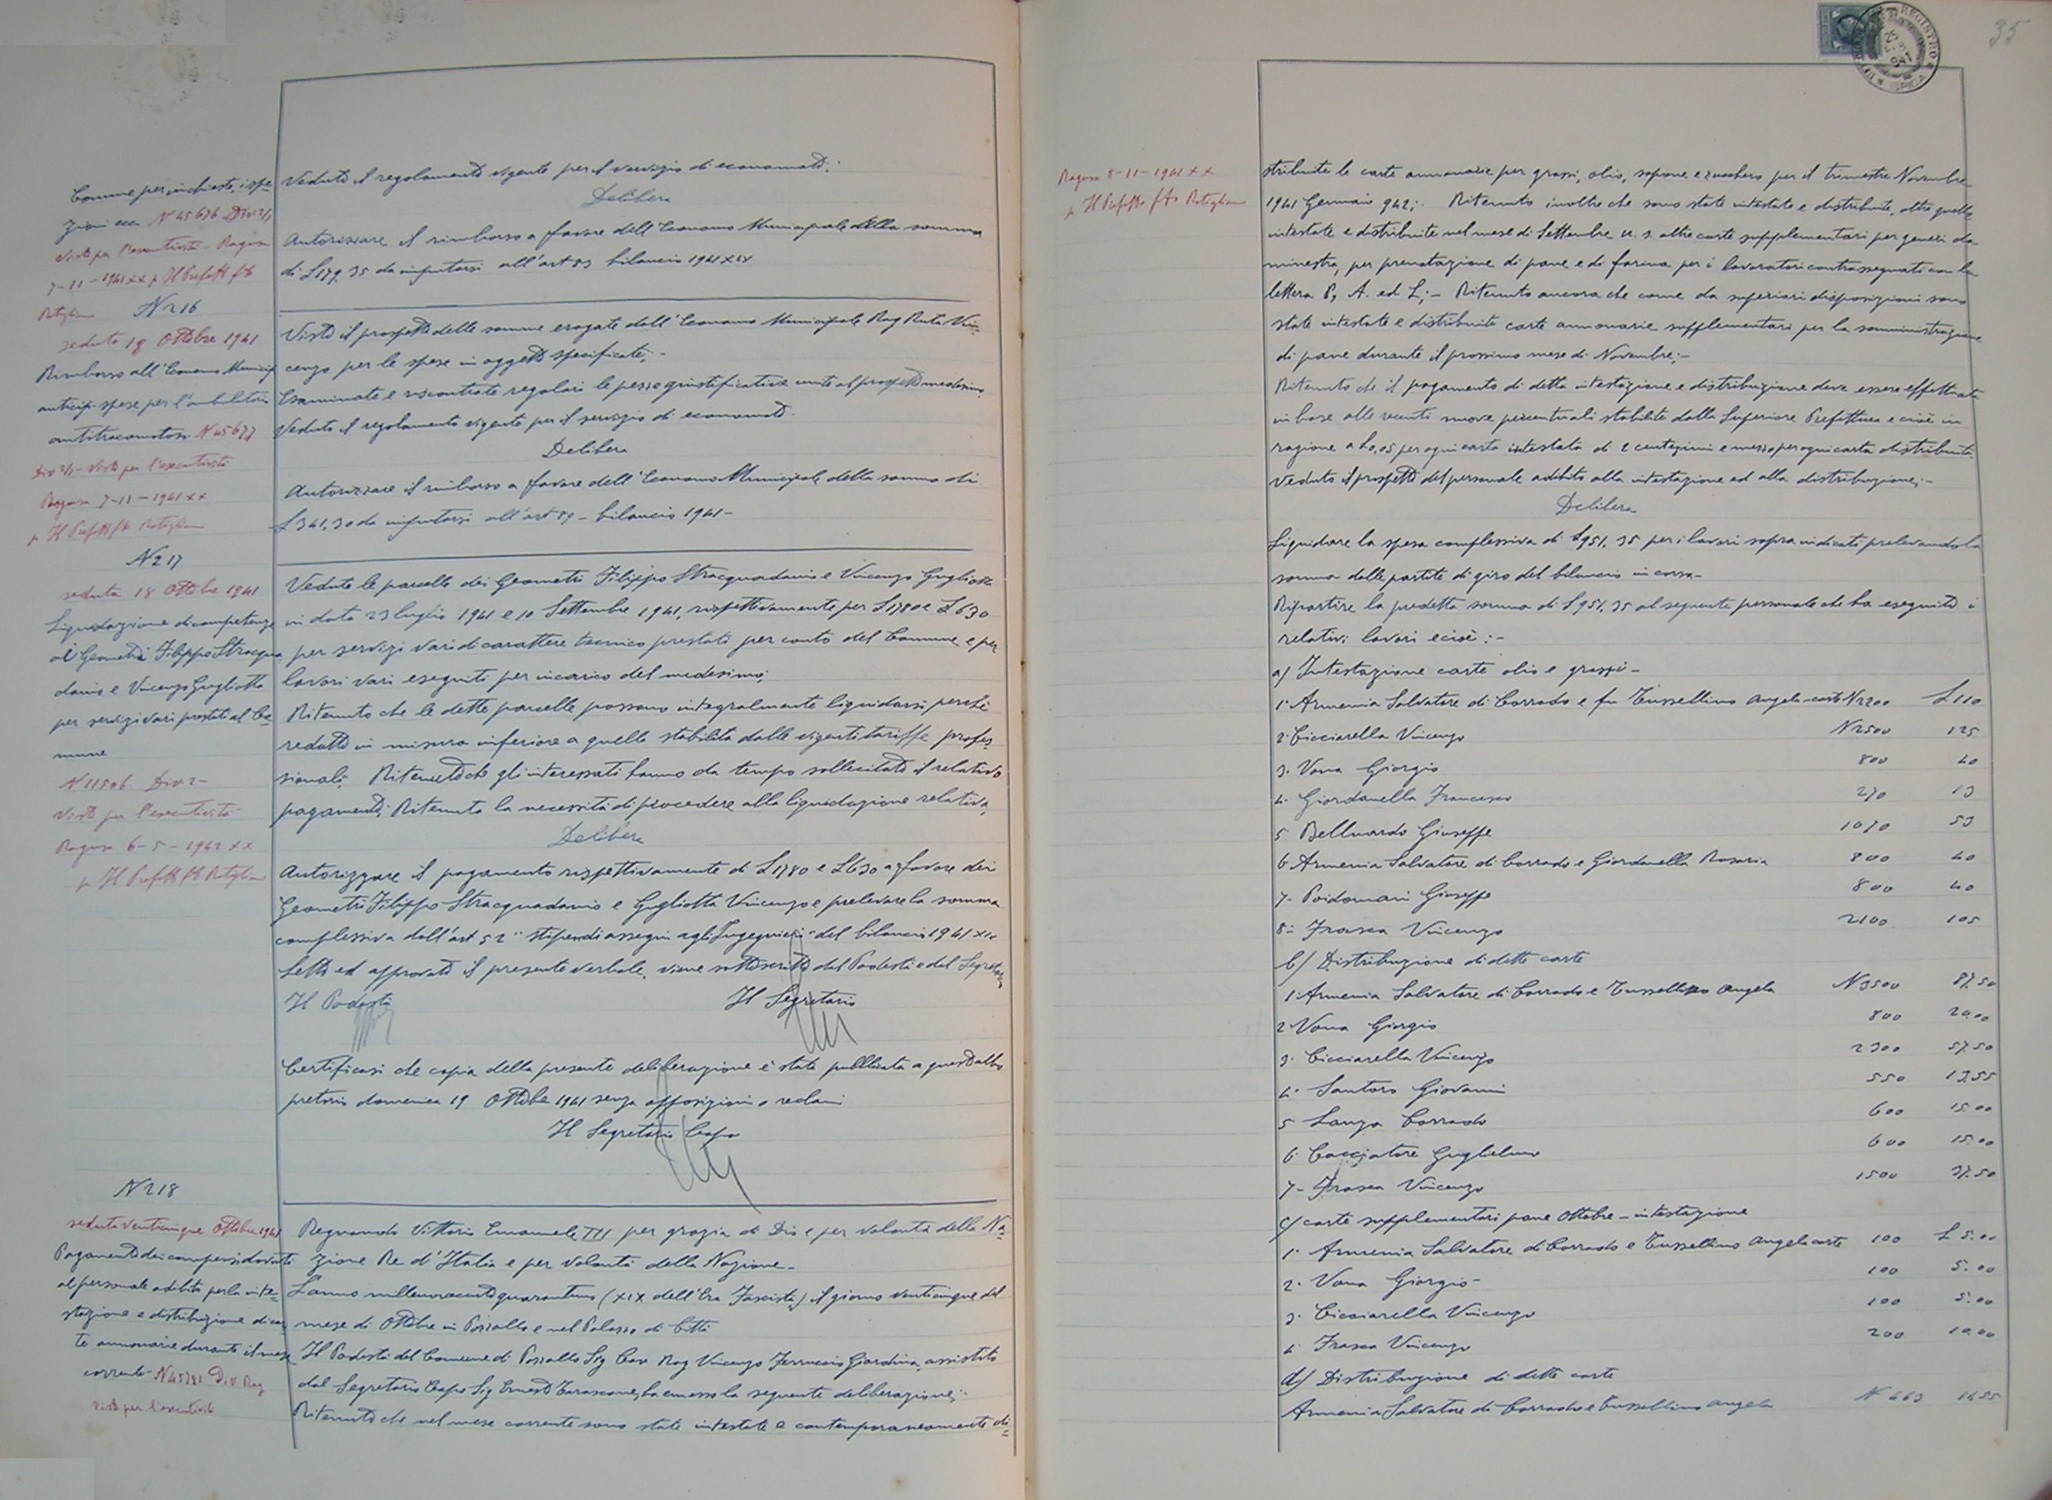 Comune per inchieste, ispe=
zioni ecc. N 45676 Div 2/1
visto per l'esecutività - Ragusa
7-11-1941 XX p Il Prefetto fto
N 216
seduta 18 Ottobre 1941
Rimborso all'Economo Municip
anticip. spese per l'ambulatorio
antitracomatoso. N 45677
Div 2/1 - Visto per l'esecutività
Ragusa 7-11-1941 XX
p Il Prefetto fto
N 217
seduta 18 Ottobre 1941
Liquidazione di competenze
ai Geometri Filippo Stracqua
danio e Vincenzo Gugliotta
per servizi vari prestati al Co=
mune
N 11506 Div. 2-
Visto per l'esecutività-
Ragusa 6-5-1942 XX
p Il Prefetto fto
N 218
seduta venticinque Ottobre 1941
Pagamento dei compensi dovuti
al personale addetto per la inte=
stazione e distribuzione di car
te annonarie durante il mese
corrente - N 45781 Div. Rag
visto per l'esecutività
Veduto il regolamento vigente per il servizio di economato;
Delibera
Autorizzare il rimborso a favore dell'Economo Municipale della somma
di L 179,35 da imputarsi all'art 83 bilancio 1941 XIX
Visto il prospetto delle somme erogate dall'Economo Municipale Rag Ruta Vin=
cenzo per le spese in oggetto specificate;-
Esaminate e riscontrate regolari le pezze giustificative unite al prospetto medesimo
Veduto il regolamento vigente per il servizio di economato.
Delibera
Autorizzare il rimborso a favore dell'Economo Municipale della somma di
L 341,30 da imputarsi all'art 89 - bilancio 1941-
Vedute le parcelle dei Geometri Filippo Stracquadanio e Vincenzo Gugliotta
in data 23 luglio 1941 e 10 Settembre 1941, rispettivamente per L 1780 e L 630
per servizi vari di carattere tecnico prestati per conto del Comune e per
lavori vari eseguiti per incarico del medesimo;
Ritenuto che le dette parcelle possono integralmente liquidarsi perchè
redatte in misura inferiore a quella stabilita dalle vigenti tariffe profes
sionali; Ritenuto che gli interessati hanno da tempo sollecitato il relativo
pagamento; Ritenuto la necessità di procedere alla liquidazione relativa,
Delibera
Autorizzare il pagamento rispettivamente di L 1780 e L 630 a favore dei
Geometri Filippo Stracquadanio e Gugliotta Vincenzo e prelevare la somma
complessiva dall'art 52 "stipendi assegni agli Ingegneri" del bilancio 1941 XIX
Letto ed approvato il presente verbale, viene sottoscritto dal Podestà e dal Segretario
Il Podestà Il Segretario
Certificasi che copia della presente deliberazione è stata pubblicata a quest'albo
pretorio domenica 19 Ottobre 1941 senza opposizioni o reclami
Il Segretario Capo
Regnando Vittorio Emanuele III per grazia di Dio e per volontà della Na=
zione Re d'Italia e per volontà della Nazione-
L'anno millenovecentoquarantuno (XIX dell'Era Fascista) il giorno venticinque del
mese di Ottobre in Pozzallo e nel Palazzo di Città
Il Podestà del Comune di Pozzallo Sig Cav Rag Vincenzo Ferruccio Giardina, assistito
dal Segretario Capo Sig Ernesto Tarascone, ha emesso la seguente deliberazione;-
Ritenuto che nel mese corrente sono state intestate e contemporaneamente di=
35
Ragusa 8-11-1941 XX
p Il Prefetto fto
stribuite le carte annonarie per grassi, olio, sapone e zucchero per il trimestre Novembre
1941 Gennaio 942;. Ritenuto inoltre che sono state intestate e distribuite, oltre quelle
intestate e distribuite nel mese di Settembre u. s. altre carte supplementari per generi da
minestra, per prenotazione di pane e di farina per i lavoratori contrassegnati con la
lettera P, A. ed L;- Ritenuto ancora che come da superiori disposizioni sono
state intestate e distribuite carte annonarie supplementari per la somministrazione
di pane durante il prossimo mese di Novembre;-
Ritenuto che il pagamento di detta intestazione e distribuzione deve essere effettuato
in base alle recenti nuove percentuali stabilite dalla Superiore Prefettura e cioè in
ragione a L 0,05 per ogni carta intestata di 2 centesimi e mezzo per ogni carta distribuita.
Veduto il prospetto del personale addetto alla intestazione ed alla distribuzione;-
Delibera
Liquidare la spesa complessiva di L 951.35 per i lavori sopra indicati prelevando la
somma dalle partite di giro del bilancio in corso-
Ripartire la predetta somma di L 951.35 al seguente personale che ha eseguito i
relativi lavori e cioè:-
a) Intestazione carte olio e grassi-
1° Armenia Salvatore di Corrado e fu Tussellino Angela-carte N 2200 L 110
2. Cicciarella Vincenzo N 2500 125
3. Vona Giorgio 800 40
4. Giordanella Francesco 270 13
5 Belluardo Giuseppe 1070 53
6 Armenia Salvatore di Corrado e Giordanella Rosaria 800 40
7- Poidomani Giuseppe 800 40
8- Frasca Vincenzo 2100 105
b) Distribuzione di dette carte
1. Armenia Salvatore di Corrado e Tussellino Angela N 3500 87.50
2. Vona Giorgio 800 20.00
3. Cicciarella Vincenzo 2300 57.50
4. Santoro Giovanni 550 13.55
5 Lanza Corrado 600 15.00
6 Cacciatore Guglielmo 600 15.00
7- Frasca Vincenzo 1500 37.50
c) carte supplementari pane Ottobre - intestazione
1. Armenia Salvatore di Corrado e Tussellino Angela carte 100 L 5.00
2. Vona Giorgio - 100 5.00
3. Cicciarella Vincenzo 100 5.00
4. Frasca Vincenzo 200 10.00
d) Distribuzione di dette carte
Armenia Salvatore di Corrado e Tussellino Angela N 663 16.55